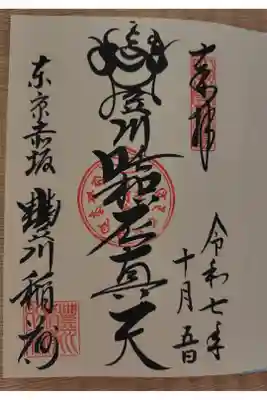 奉拝
令和七年
十月五日
豊川吒枳尼真天
東京赤坂
豐川稲荷